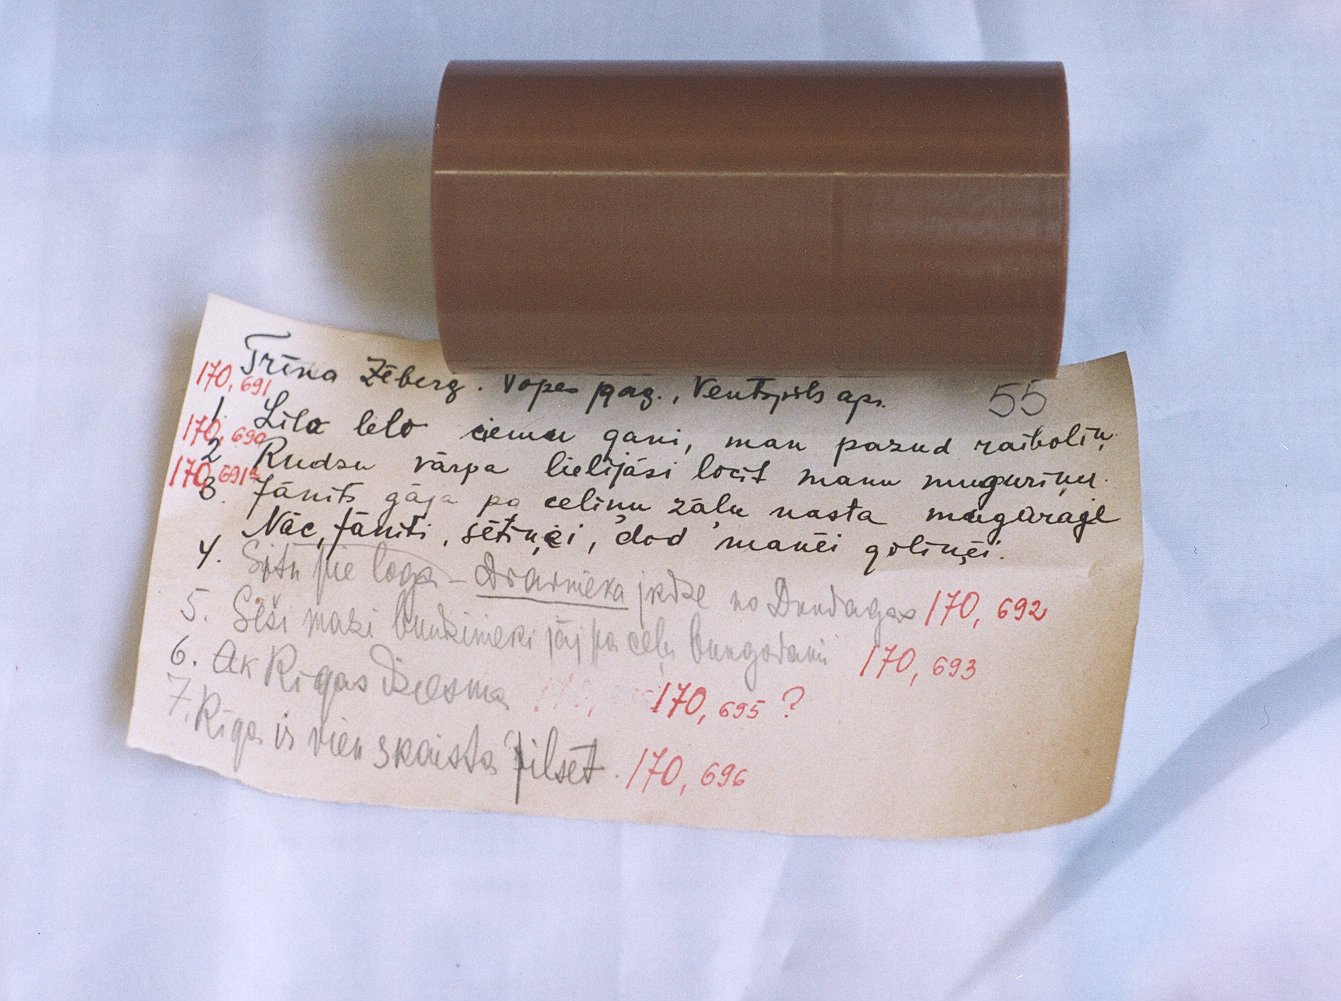 Trīna Zēberg. Popes pag., Ventspils apr. 55
170,691
1. Lilo lelo ciema gani, man pazud raiboliņ.
170,690
2. Rudzu vārpa lielījāsi locīt manu muguriņu.
170,691a
3. Jānīts gāja pa celiņu zāļu nasta mugurāje
Nāc, Jānīti, sētiņēi, dod manēi gotiņēi.
4. Situ pie loga – Dravnieka jrdze no Dundagas 170,692
5. Seši mazi bundzinieki jāj pa ceļu bungodami 170,693
6. Ak Rīgas Dižesma 170,695 ?
7. Rīga is vien skaista pilsēt. 170,696